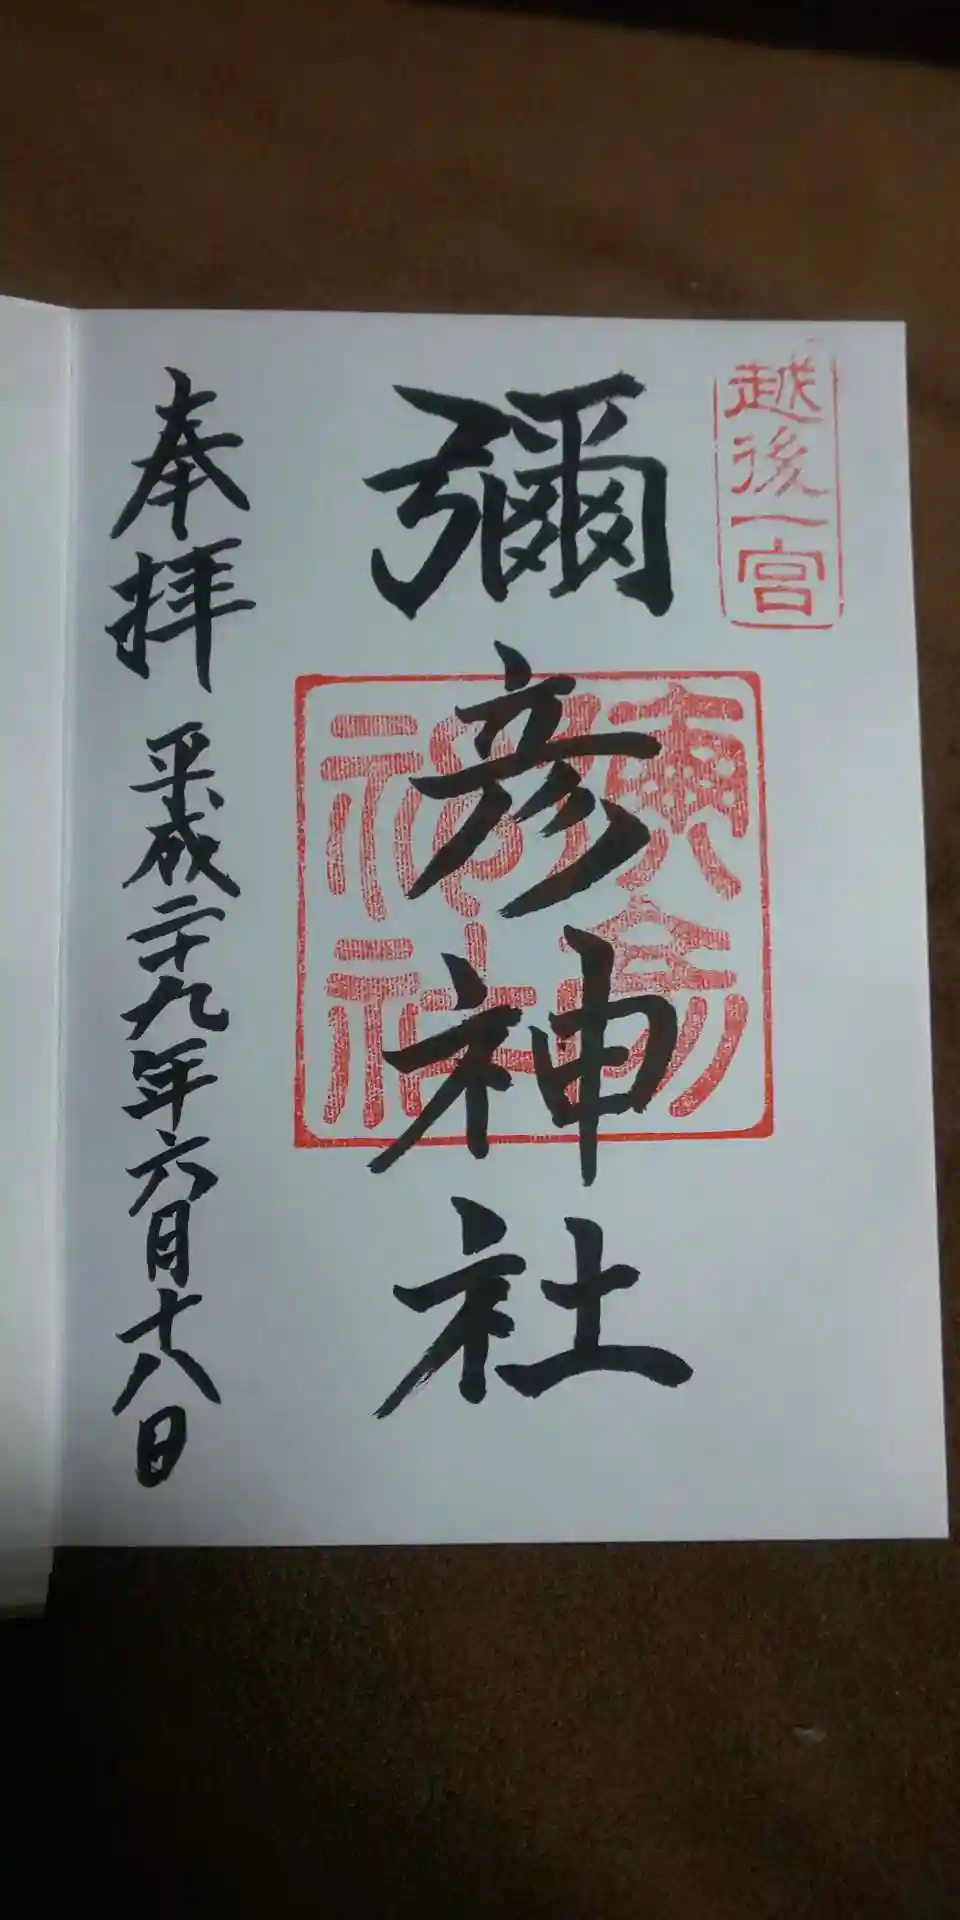 越後一宮
彌彦神社
彌彦神社
奉拝 平成二十九年六月十八日